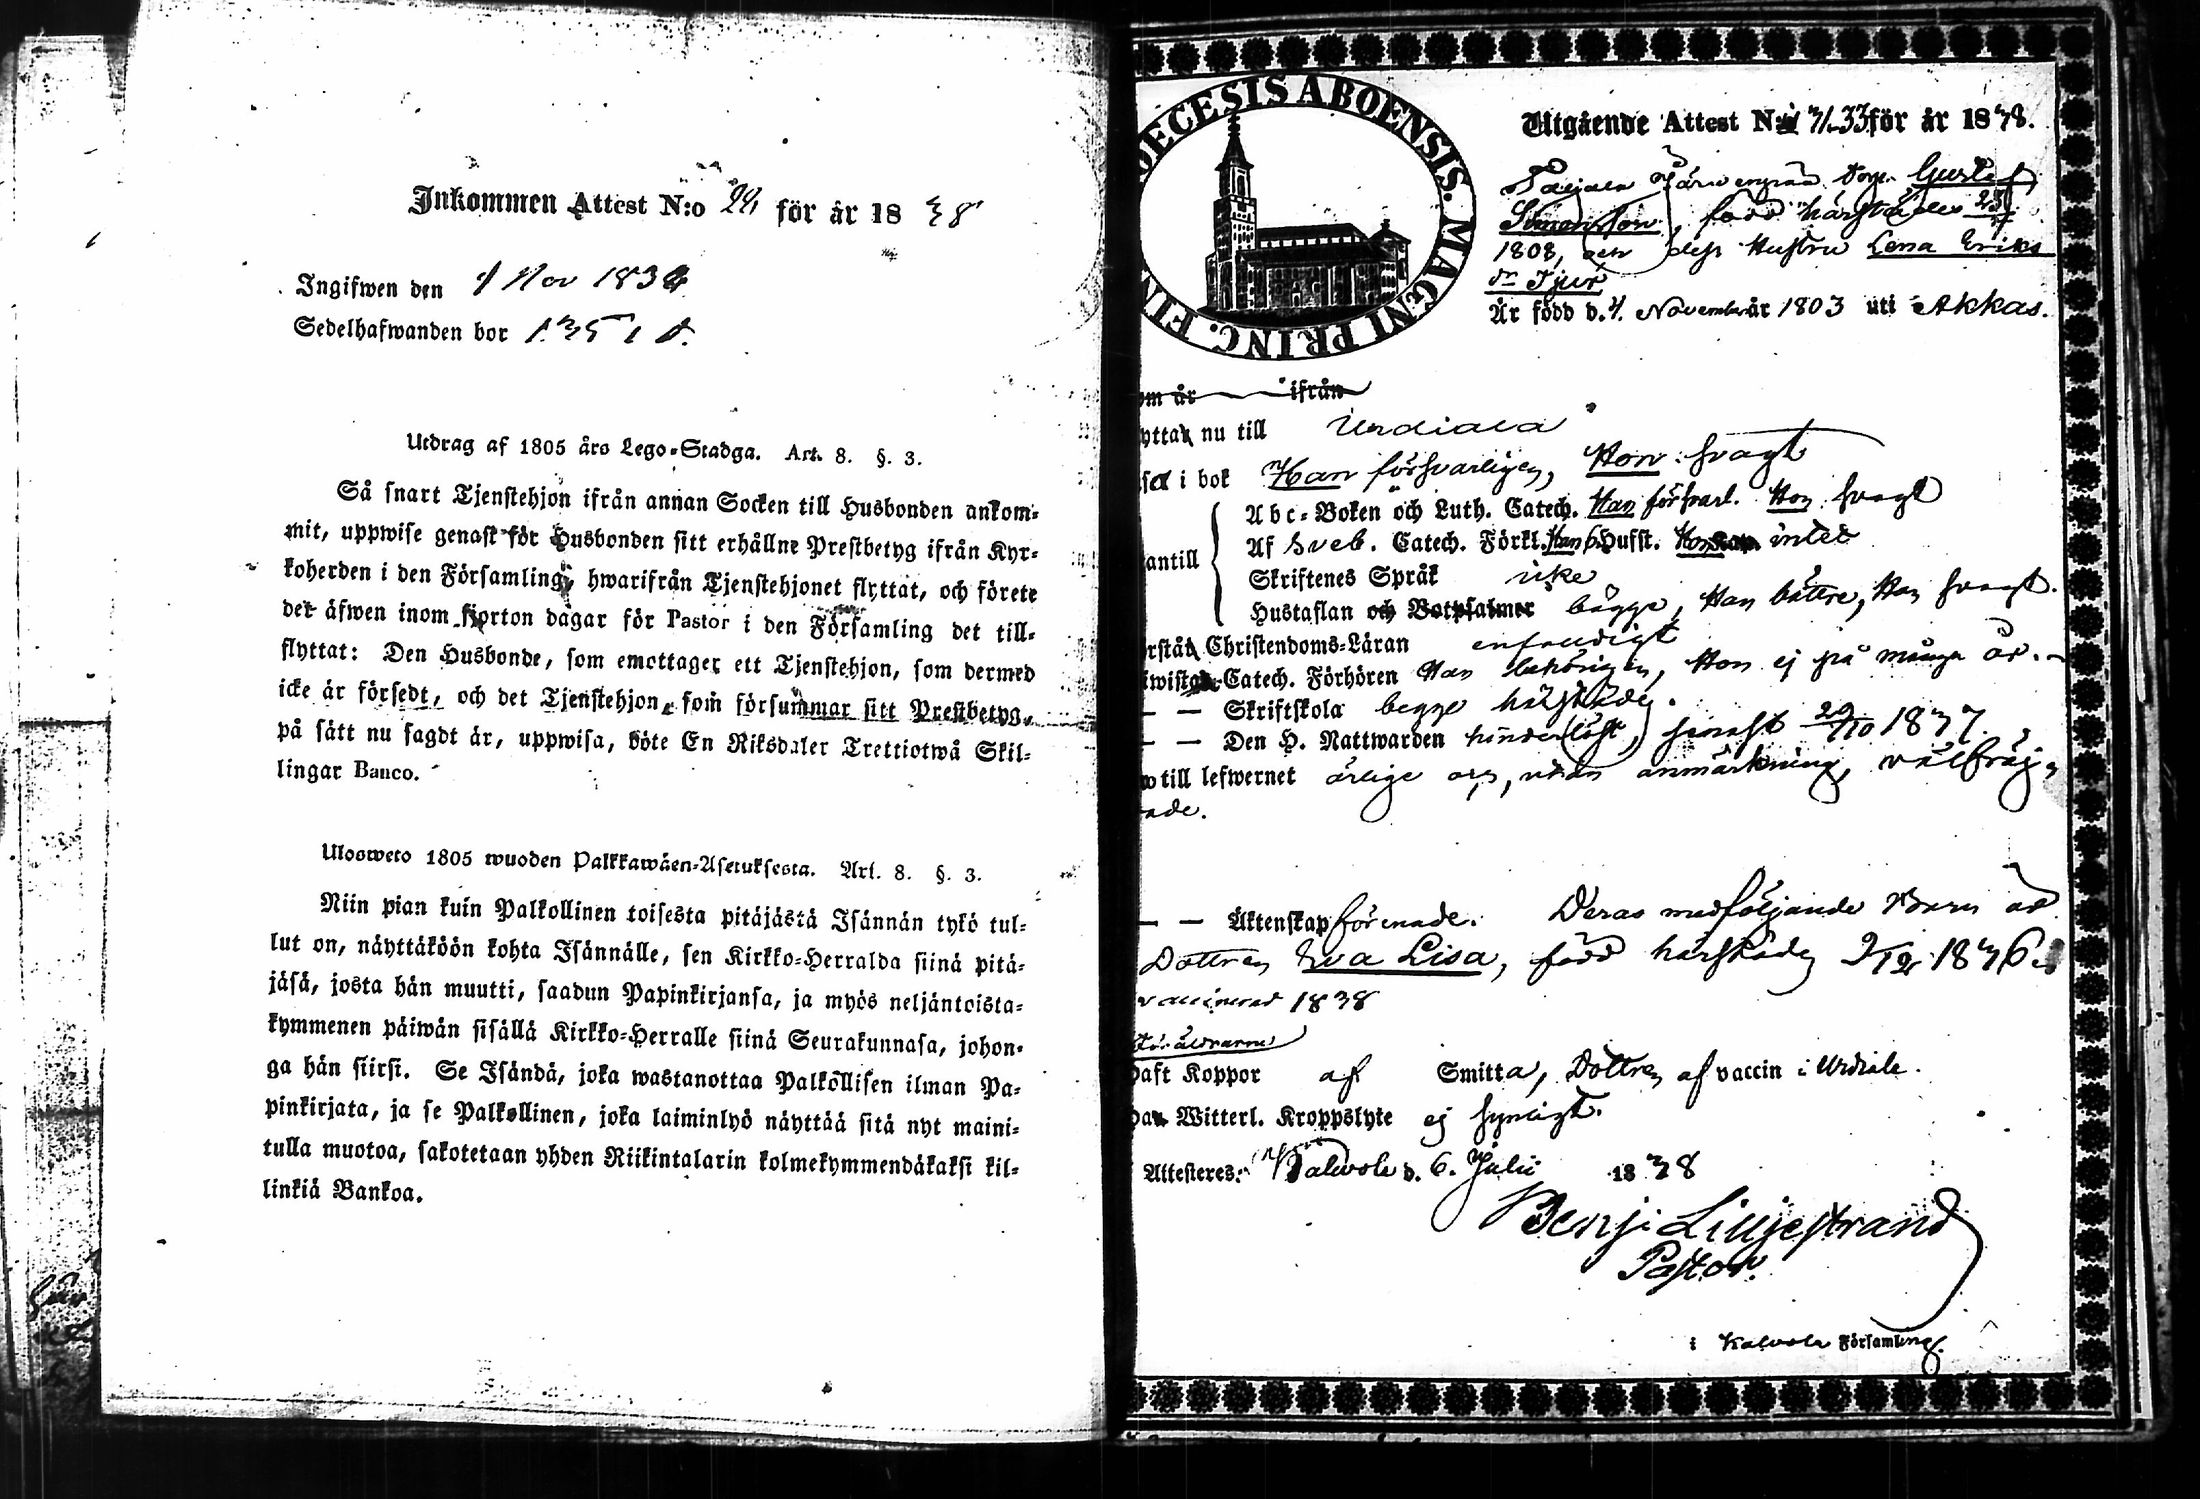 Inkommen Attest N:o 24 för år 1838
Ingifwen den 1 Nov 1838
Sedelhafwanden bor
Utdrag af 1805 års Lego-Stadga. Art. 8. §. 3.
Så snart Tjenstehjon ifrån annan Socken till Husbonden ankom-
mit, uppwise genast för Husbonden sitt erhållne Prestbetyg ifrån Kyr-
koherden i den Församling, hwarifrån Tjenstehjonet flyttat, och förete
det äfwen inom fjorton dagar för Pastor i den Församling det till-
flyttat: Den Husbonde, som emottager ett Tjenstehjon, som dermed
icke är försedt, och det Tjenstehjon, som försummar sitt Prestbetyg,
på sätt nu sagdt är, uppwisa, böte En Riksdaler Trettiotwå Skil-
lingar Banco.
Ulosweto 1805 wuoden Palkkawäen-Asetuksesta. Art. 8. §. 3.
Niin pian kuin Palkollinen toisesta pitäjästä Isännän tykö tul-
lut on, näyttäköön kohta Isännälle, sen Kirkko-Herralda siinä pitä-
jäsä, josta hän muutti, saadun Papinkirjansa, ja myös neljäntoista-
kymmenen päiwän sisällä Kirkko-Herralle siinä Seurakunnasa, johon-
ga hän siirsi. Se Isändä, joka wastanottaa Palkollisen ilman Pa-
pinkirjata, ja se Palkollinen, joka laiminlyö näyttää sitä nyt maini-
tulla muotoa, sakotetaan yhden Riikintalarin kolmekymmendäkaksi kil-
linkiä Bankoa.
DIOECESIS ABOENSIS. MAGNI PRINC. FIN
Utgående Attest N:o 31-33 för år 1838.
Gustaf
Simonsson, född härstädes 23/
1808, och dess Hustru Lena Eriks
dr
Är född d. 4. November år 1803 uti Akkas.
om år ifrån
yttar nu till Urdiala
i bok Han försvarligen, Hon svagt
Abc-Boken och Luth. Catech. Han försvarl. Hon svagt
Af Sveb. Catech. Förkl. Han Hufst. Hon intet
antill
Skriftenes Språk icke
Hustaflan och Botpsalmer bägge, Han bättre, Hon svagt.
rstår Christendoms-Läran enfaldigt
wistats Catech. Förhören Han behörigen, Hon ej på många år.
— — Skriftskola begge härstädes.
— — Den H. Nattwarden hinderlöst, senast 29/10 1837.
till lefwernet ärlige och, utan anmärkning, välfräj-
ade.
— — Äktenskap förenade. Deras medföljande Barn är
Dottren Eva Lisa, född härstädes 9/12 1836.
vaccinerad 1838
Föräldrarne
haft Koppor af Smitta, Dottren af vaccin i Urdiala.
Witterl. Kroppslyte ej synligt.
Attesteres: Kalvola d. 6. Julii 1838
Benj. Liljestrand
Pastor.
i Kalvola Församling.